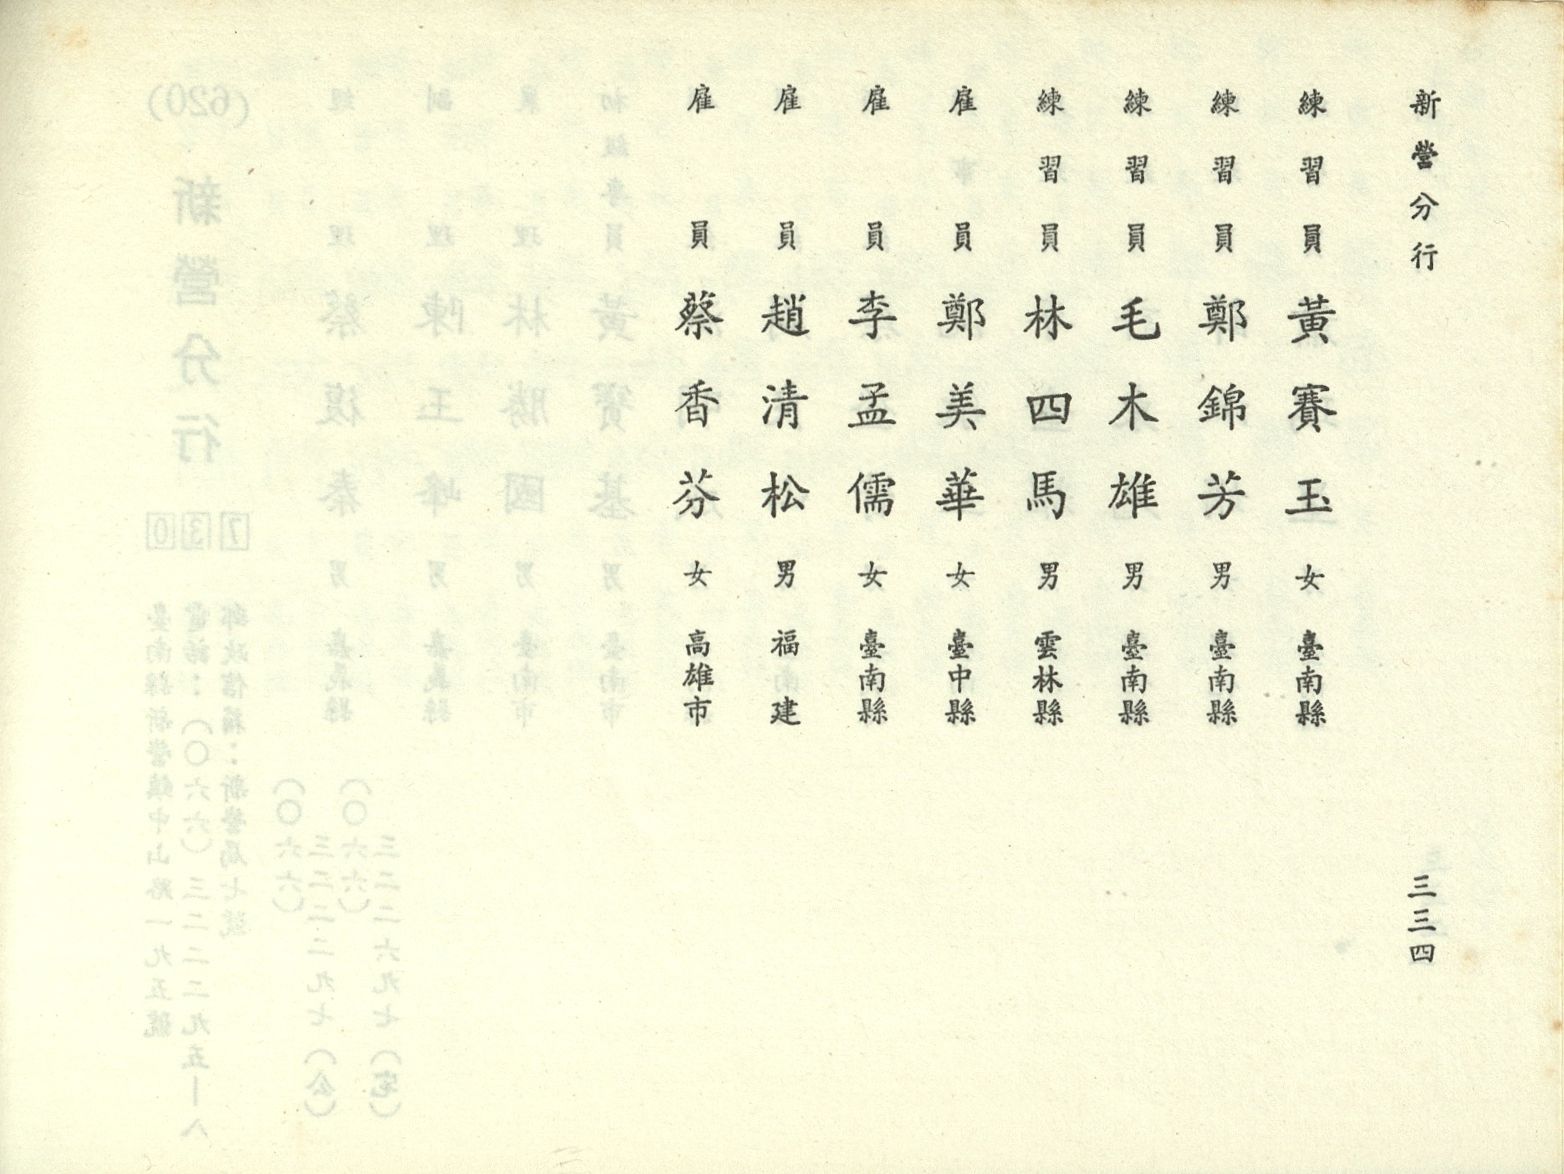 新營分行
三三四
練習員 黃賽玉 女 臺南縣
練習員 鄭錦芳 男 臺南縣
練習員 毛木雄 男 臺南縣
練習員 林四馬 男 雲林縣
雇員 鄭美華 女 臺中縣
雇員 李孟儒 女 臺南縣
雇員 趙清松 男 福建
雇員 蔡香芬 女 高雄市